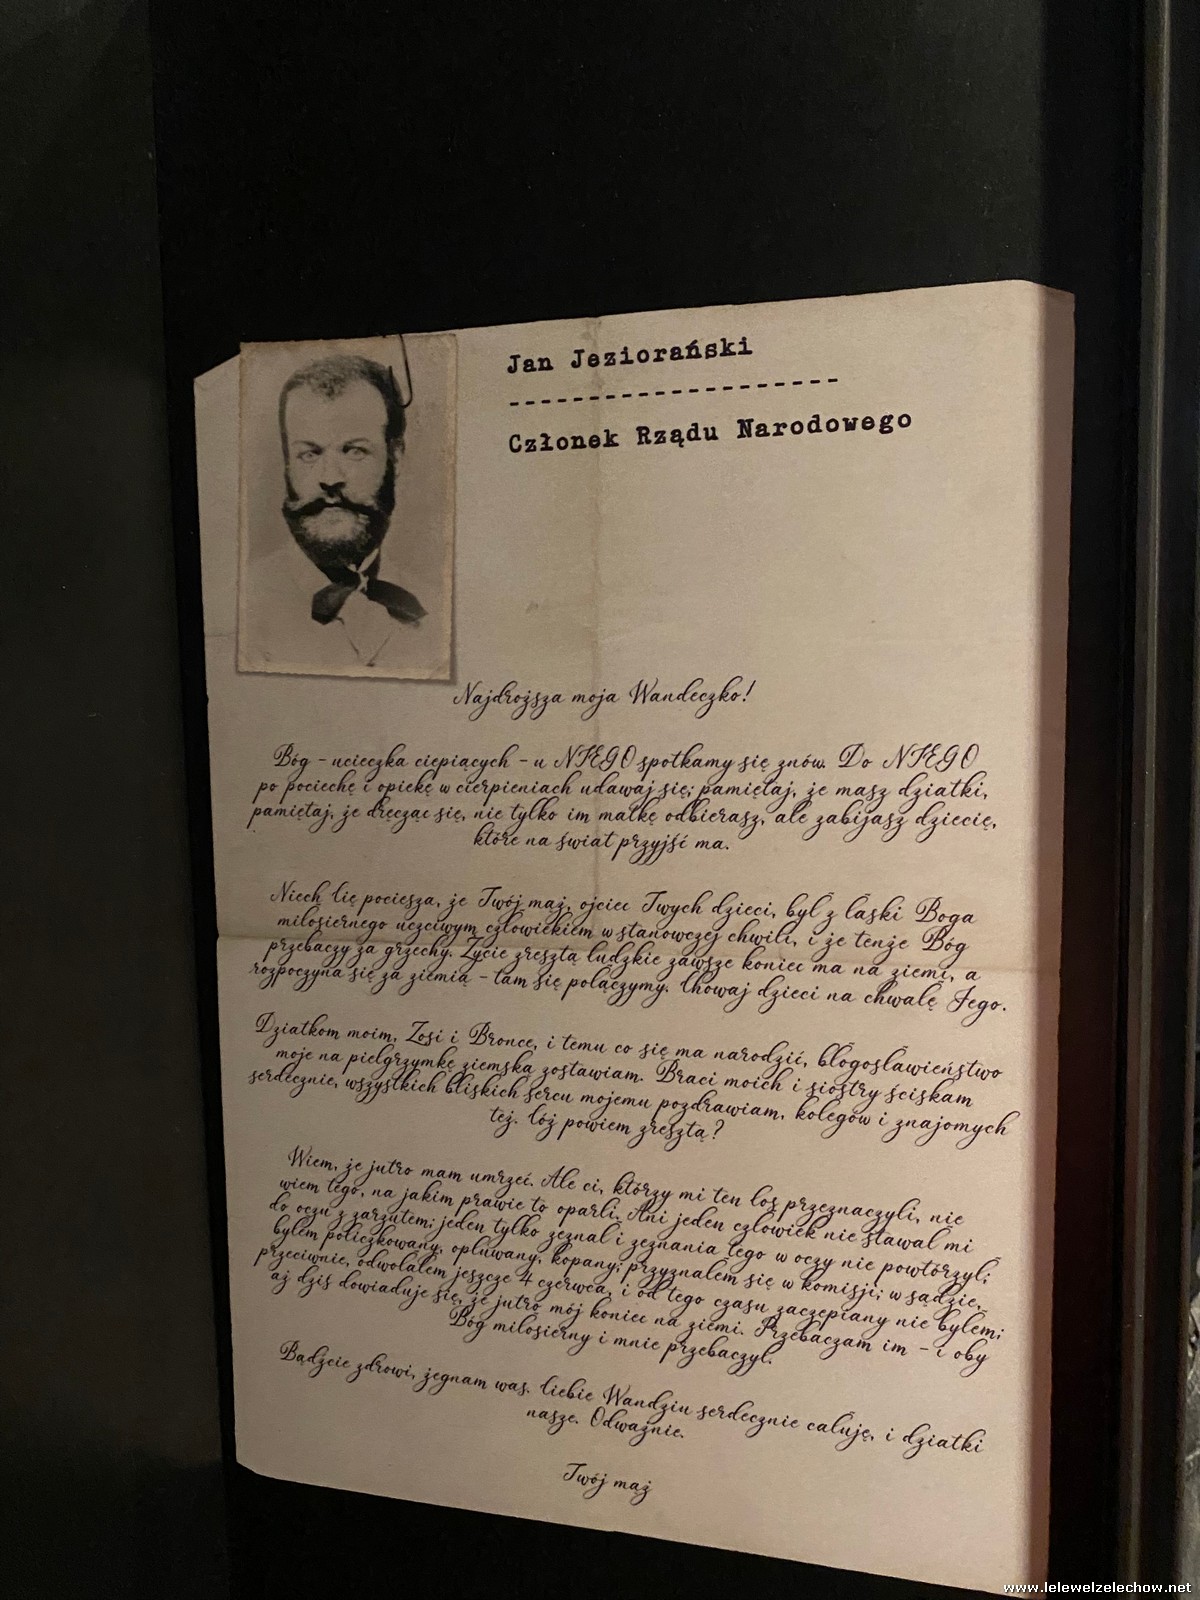 Jan Jeziorański
--------------------
Członek Rządu Narodowego
Najdroższa moja Wandeczko!
Bóg - ucieczka ciepiących - u NIEGO spotkamy się znów. Do NIEGO
po pociechę i opiekę w cierpieniach udawaj się; pamiętaj, że masz dziatki,
pamiętaj, że dręcząc się, nie tylko im matkę odbierasz, ale zabijasz dziecię,
które na świat przyjść ma.
Niech Cię pociesza, że Twój mąż, ojciec Twych dzieci, był z łaski Boga
miłosiernego uczciwym człowiekiem w stanowczej chwili, i że tenże Bóg
przebaczy za grzechy. Życie zresztą ludzkie zawsze koniec ma na ziemi, a
rozpoczyna się za ziemią - tam się połączymy. Chowaj dzieci na chwałę Jego.
Dziatkom moim, Zosi i Bronce, i temu co się ma narodzić, błogosławieństwo
moje na pielgrzymkę ziemską zostawiam. Braci moich i siostry ściskam
serdecznie, wszystkich bliskich sercu mojemu pozdrawiam, kolegów i znajomych
też. Cóż powiem zresztą?
Wiem, że jutro mam umrzeć. Ale ci, którzy mi ten los przeznaczyli, nie
wiem tego, na jakim prawie to oparli. Ani jeden człowiek nie stawał mi
do oczu z zarzutem; jeden tylko zeznał i zeznania tego w oczy nie powtórzył;
byłem policzkowany, opluwany, kopany; przyznałem się w komisji; w sądzie,
przeciwnie, odwołałem jeszcze 4 czerwca, i od tego czasu zaczepiany nie byłem;
aż dziś dowiaduję się, że jutro mój koniec na ziemi. Przebaczam im - i oby
Bóg miłosierny i mnie przebaczył.
Bądźcie zdrowi, żegnam was. Ciebie Wandziu serdecznie całuję, i dziatki
nasze. Odważnie.
Twój mąż
www.lelewelzelechow.net